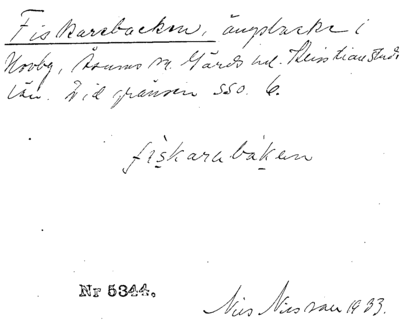 Fiskarebacken, ängsbacke i
Hovby, Åhums sn. Gärds hd. Kristianstads
län. Vid gränsen sso. 6.
fiskarabaken
Nr 5344.
Nils Nilsson 1933.